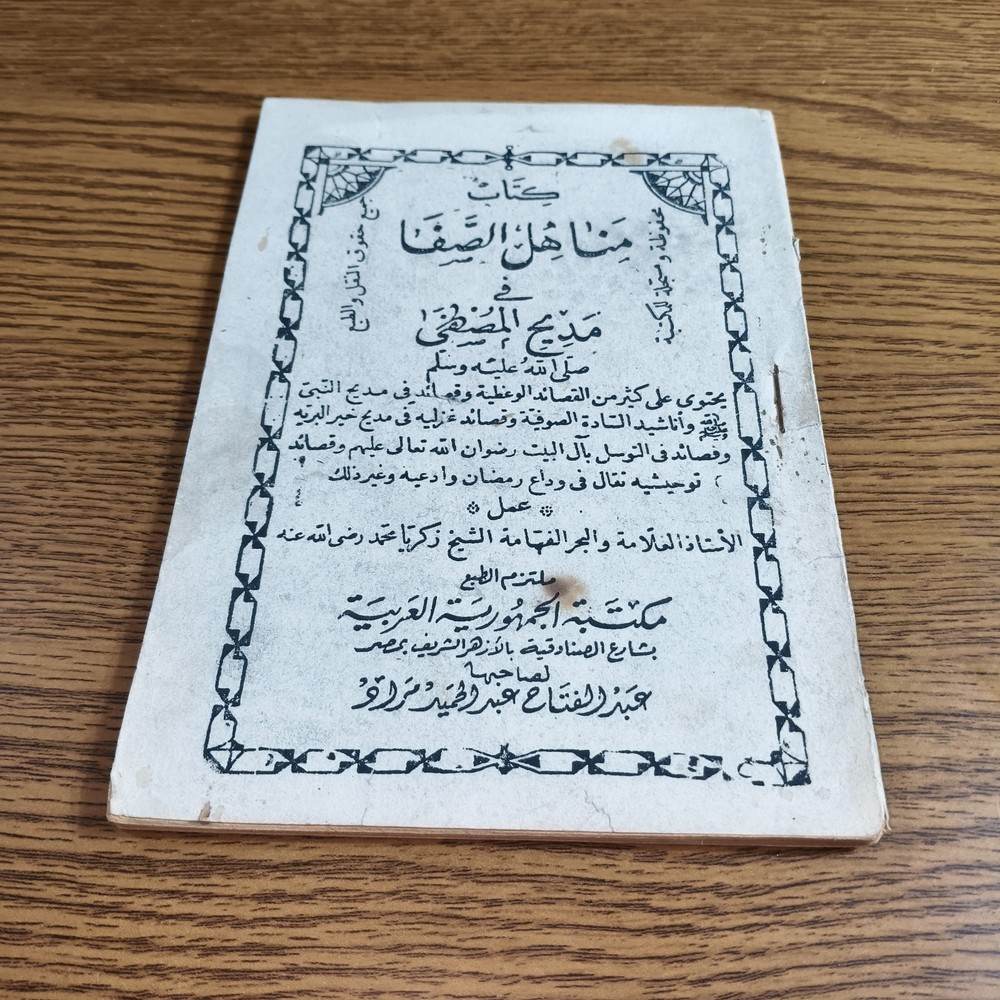 كِتَابْ
مَنَاهِلْ الصَّفَا
فى
مَدِيحِ المُصْطَفَى
صَلَّى اللهُ عَلَيْهِ وسَلَّم
يحتوى على كثير من القصائد الوعظية وقصائد فى مديح النَّبىّ
ﷺ وأناشيد السَّادة الصوفية وقصائد غزليه فى مديح خير البريه
وقصائد فى التوسل بآل البيت رضوان الله تعالى عليهم وقصائد
توحيشيه تقال فى وداع رمضان وأدعيه وغير ذلك
عمل
الأستاذ العَلّامة والبحر الفهّامة الشيخ زكريَّا محمد رضى الله عنه
ملتزم الطبع
مكتَبة الجمهُوريَّة العَربيَّة
بشارع الصنادقية بالأزهر الشريف بمصر
لصاحبها
عَبْد الفتاح عَبْد الحميْد مُرادْ
جميع حقوق النقل والطبع
محفوظة ومسجلة للمكتبة